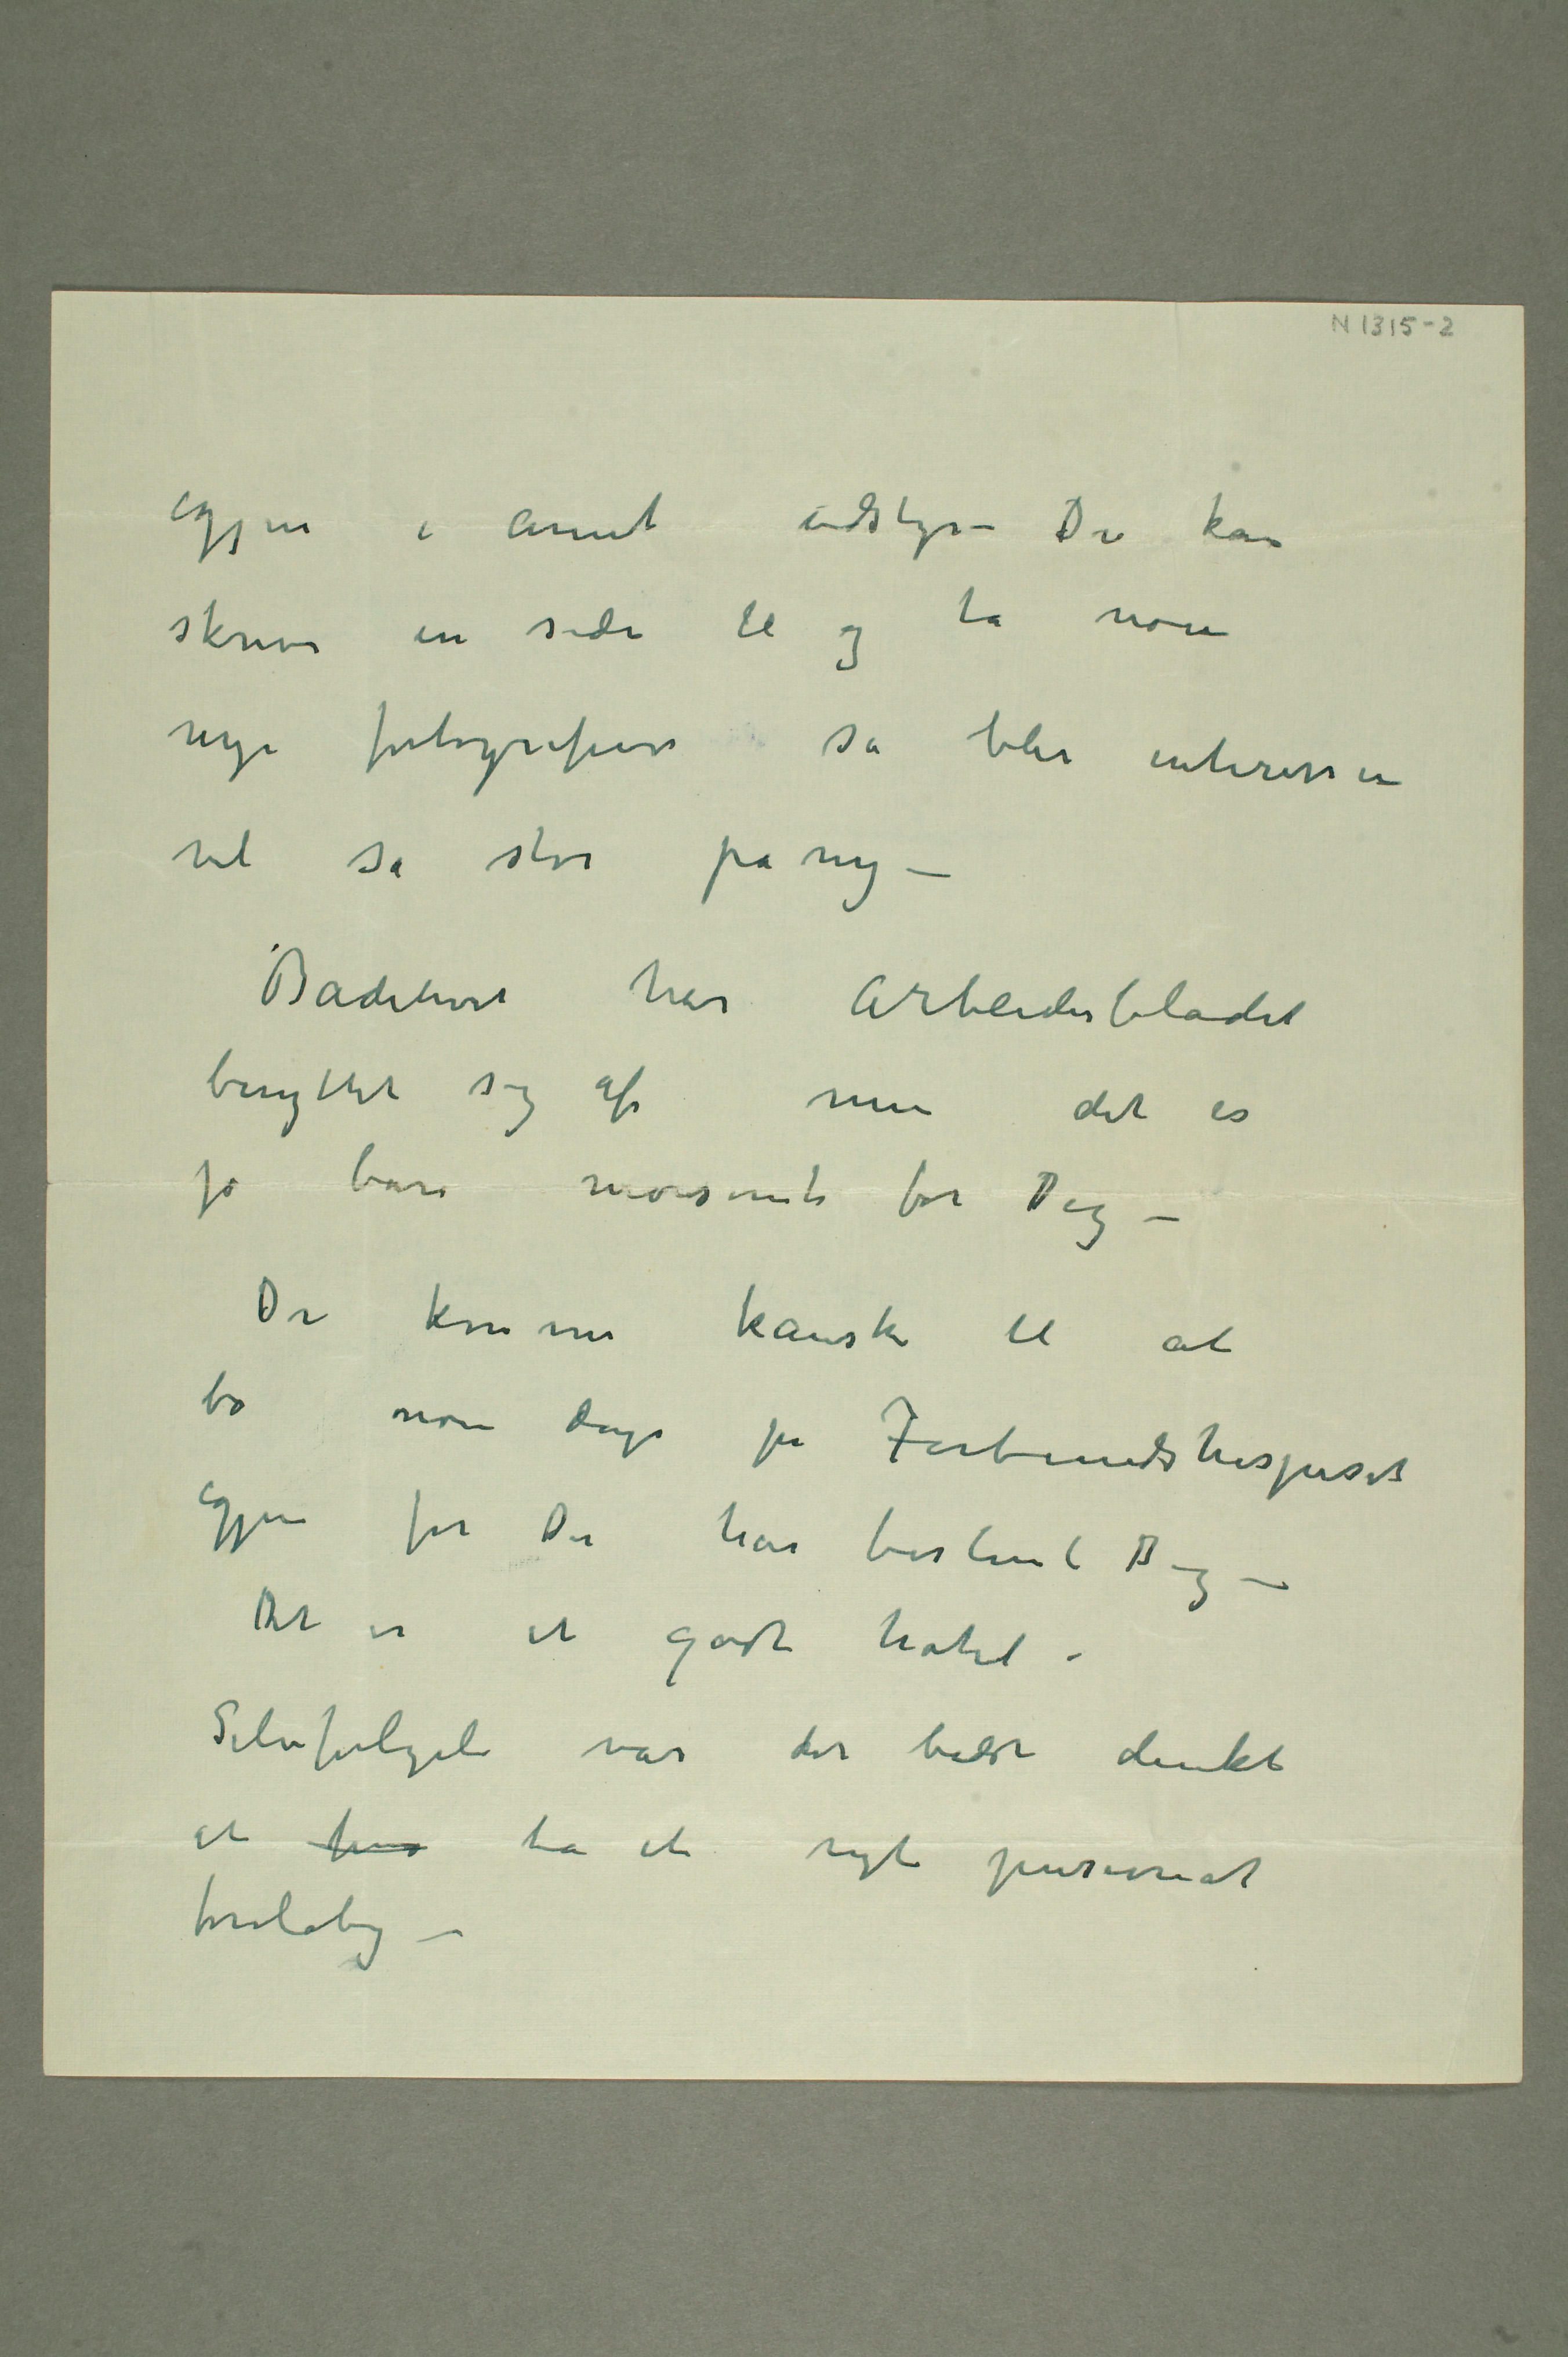 N 1315-2
igjen i annet udstyr – Du kan
skrive en side til og ta noen
nye fotografier så blir interessen
vel så stor på ny –
Badehort har Arbeiderbladet
benyttet sig af men det er
jo bare morsomt for Dig –
Du kommer kanske til at
bo noen dage på Forbundshospiset
igjen før Du har bestemt Dig –
Det er et godt hotel –
Selvfølgelig var det bedst tænkt
at ta et nyt pensionat
foreløbig –